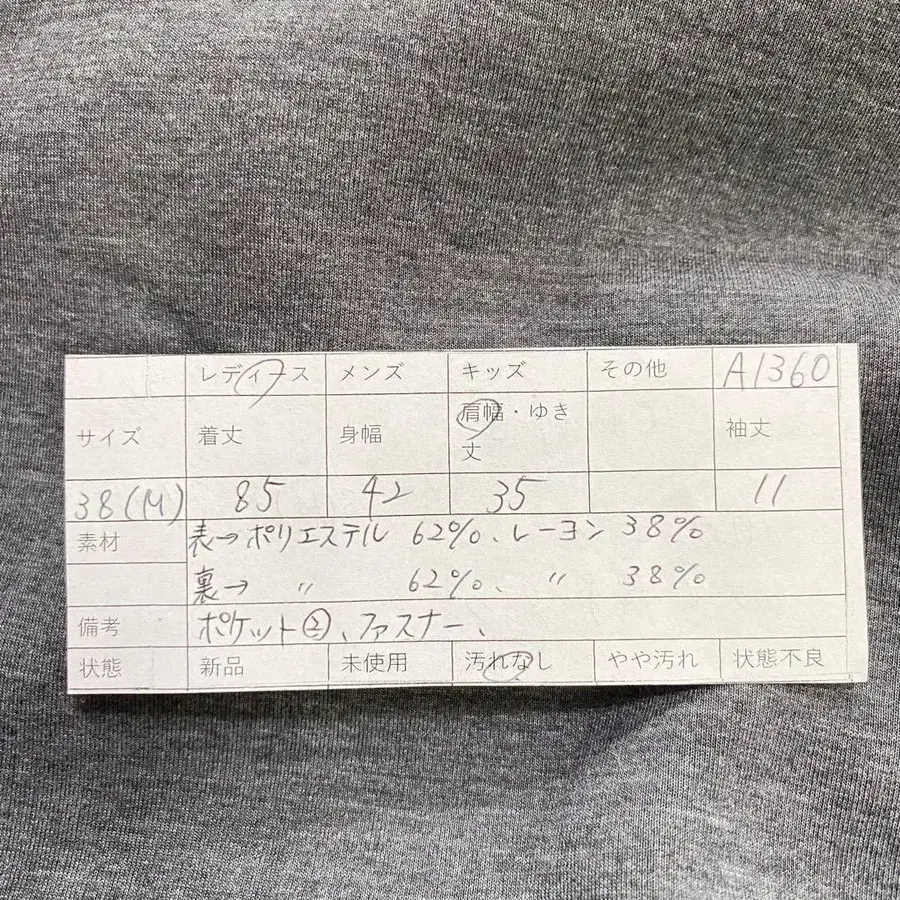 レディース メンズ キッズ その他 A1360
サイズ 着丈 身幅 肩幅・ゆき丈 袖丈
38(M) 85 42 35 11
素材 表→ポリエステル 62%、レーヨン 38%
裏→ 〃 62%、 〃 38%
備考 ポケット②、ファスナー、
状態 新品 未使用 汚れなし やや汚れ 状態不良